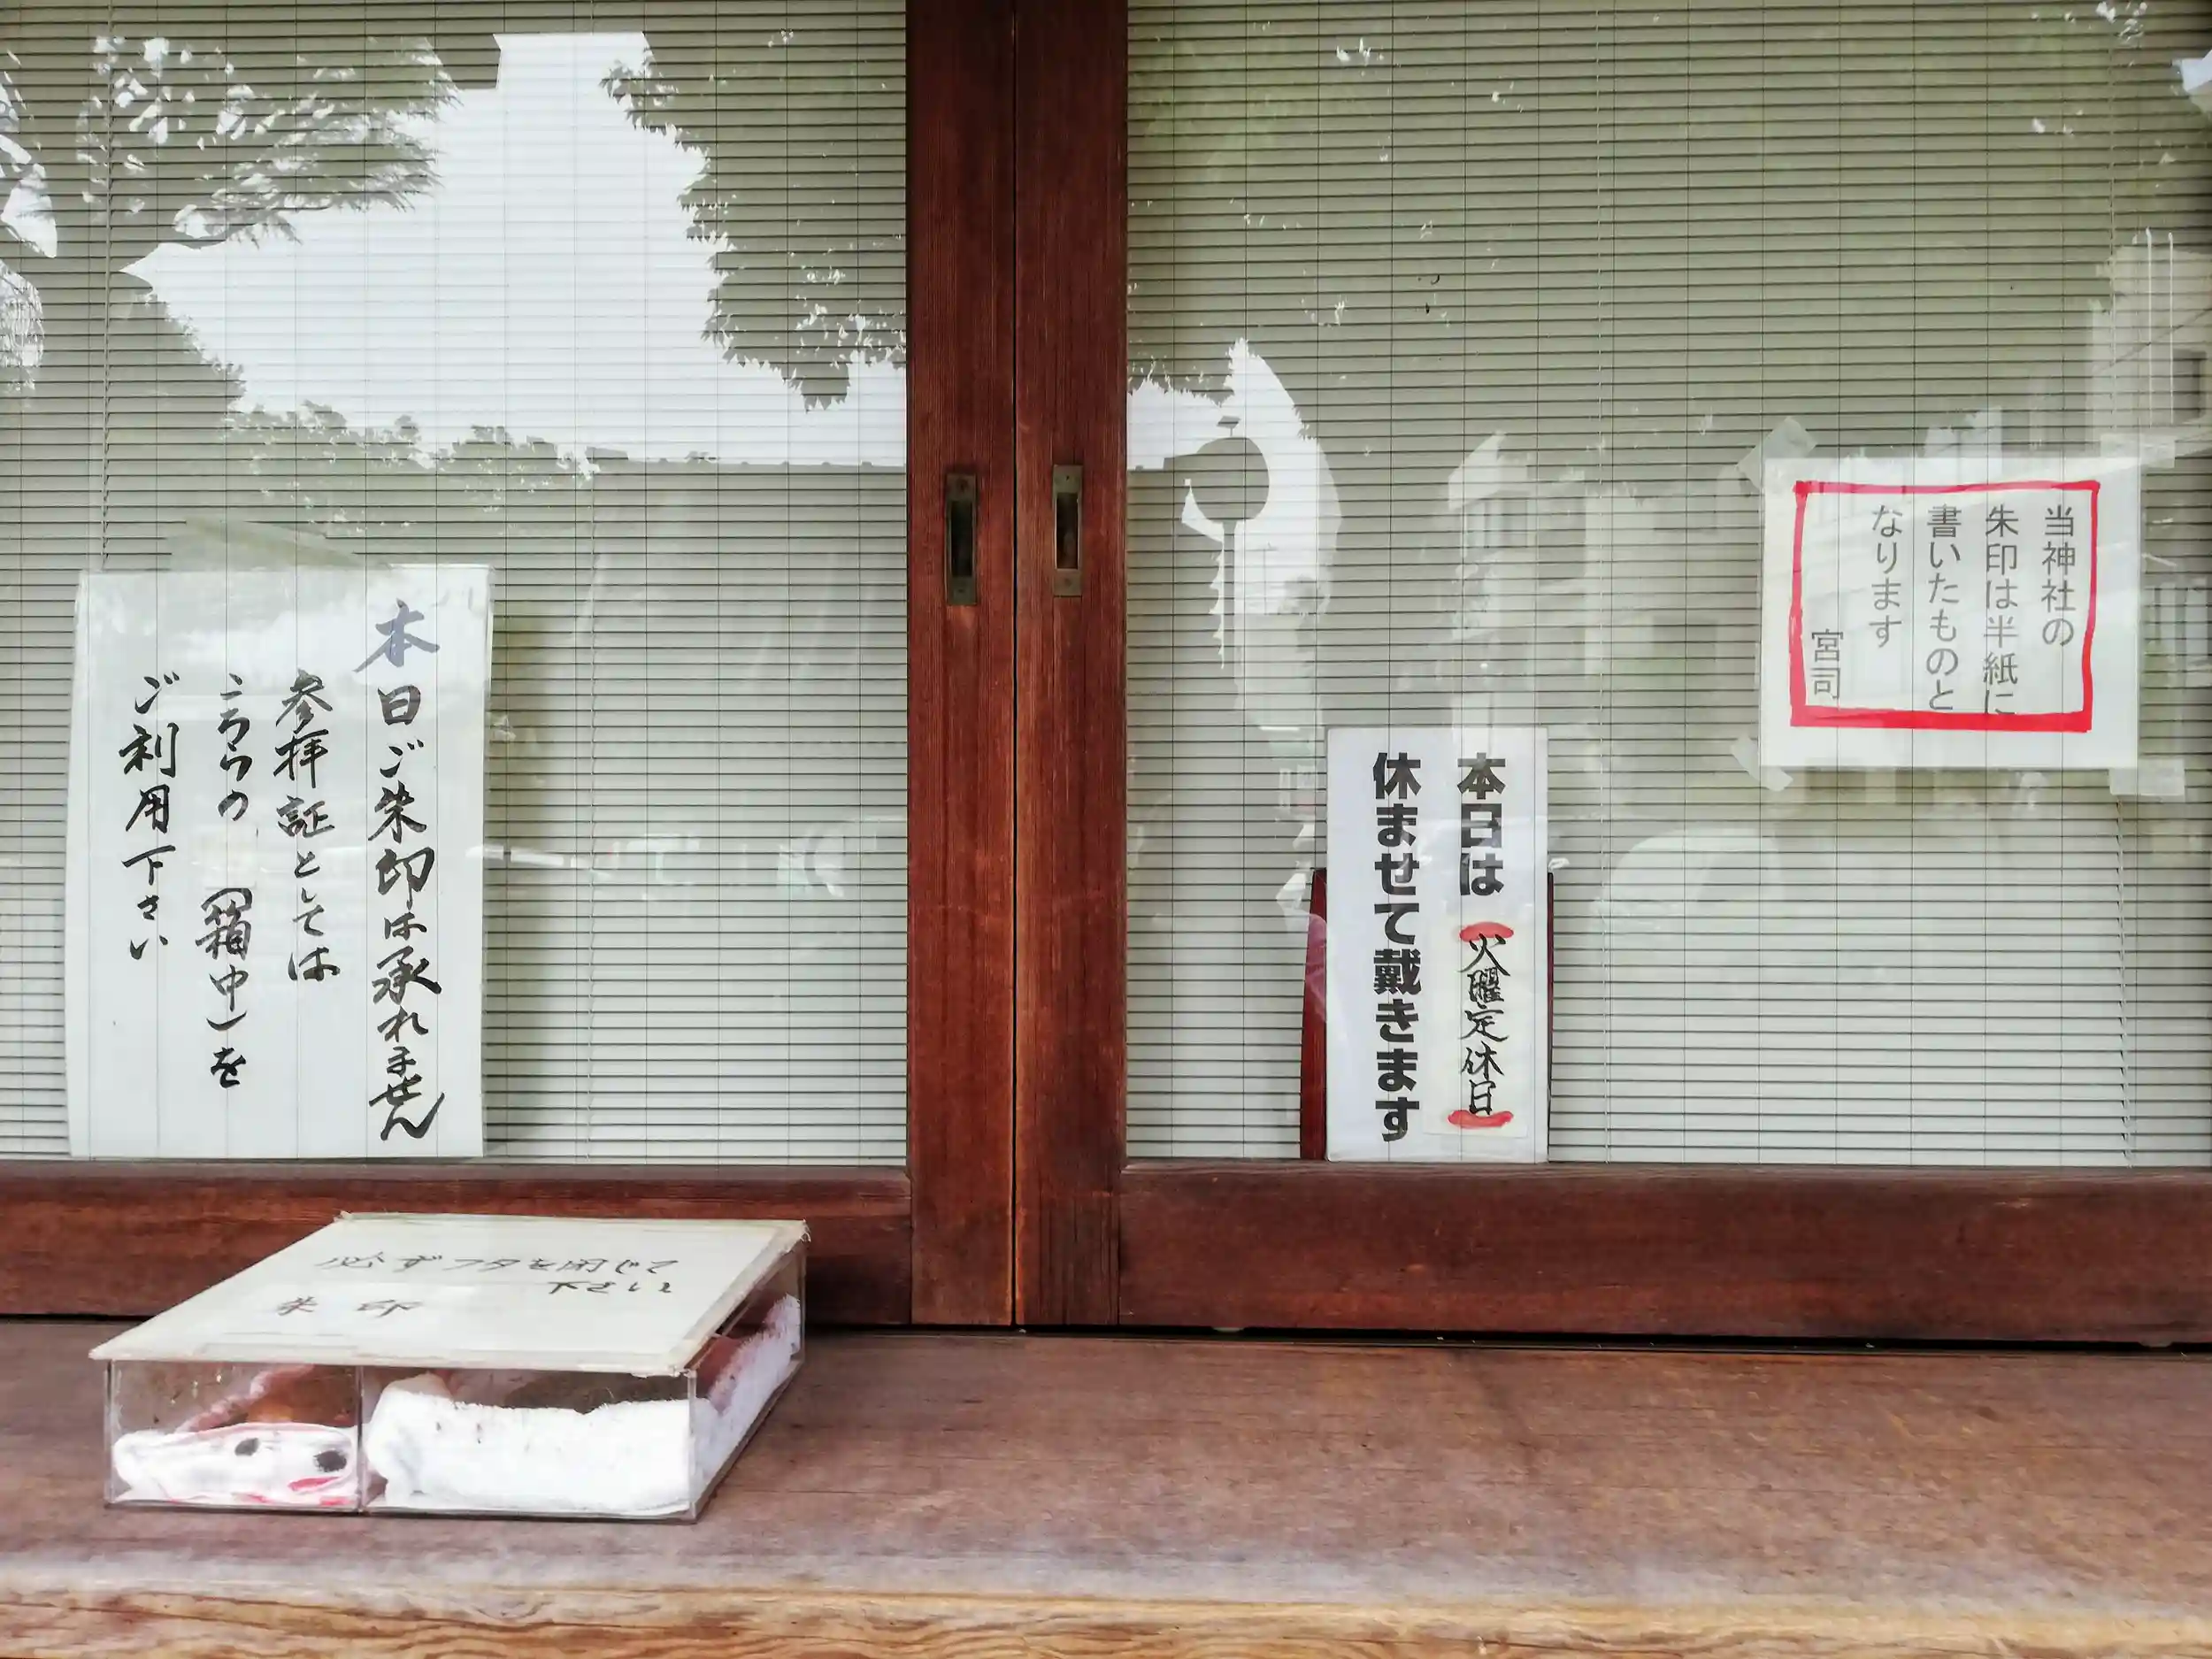 本日ご朱印は承れません
参拝証としては
こちらの(箱中)を
ご利用下さい
本日は
火曜定休日
休ませて戴きます
当神社の
朱印は半紙に
書いたものと
なります
宮司
必ずフタを閉じて
下さい
朱印